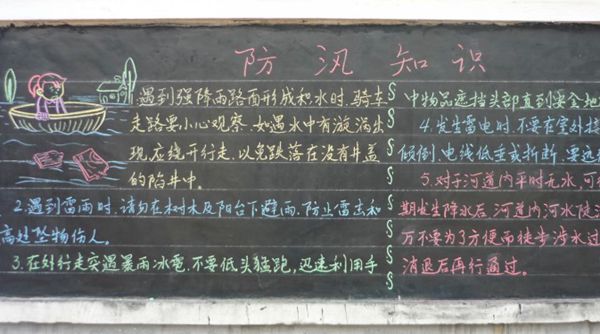 防汛知识
1.遇到强降雨路面形成积水时.骑车
走路要小心观察.如遇水中有漩涡出
现,应绕开行走.以免跌落在没有井盖
的陷井中.
2.遇到雷雨时.请勿在树木及阳台下避雨.防止雷击和
高处坠物伤人.
3.在外行走突遇暴雨冰雹.不要低头猛跑,迅速利用手
中物品遮挡头部直到安全地
4.发生雷电时.不要在室外接
倾倒.电线低垂或折断.要远
5.对于河道内平时无水,可
期发生降水后.河道内河水陡
万不要为了方便而徒步涉水过
消退后再行通过.